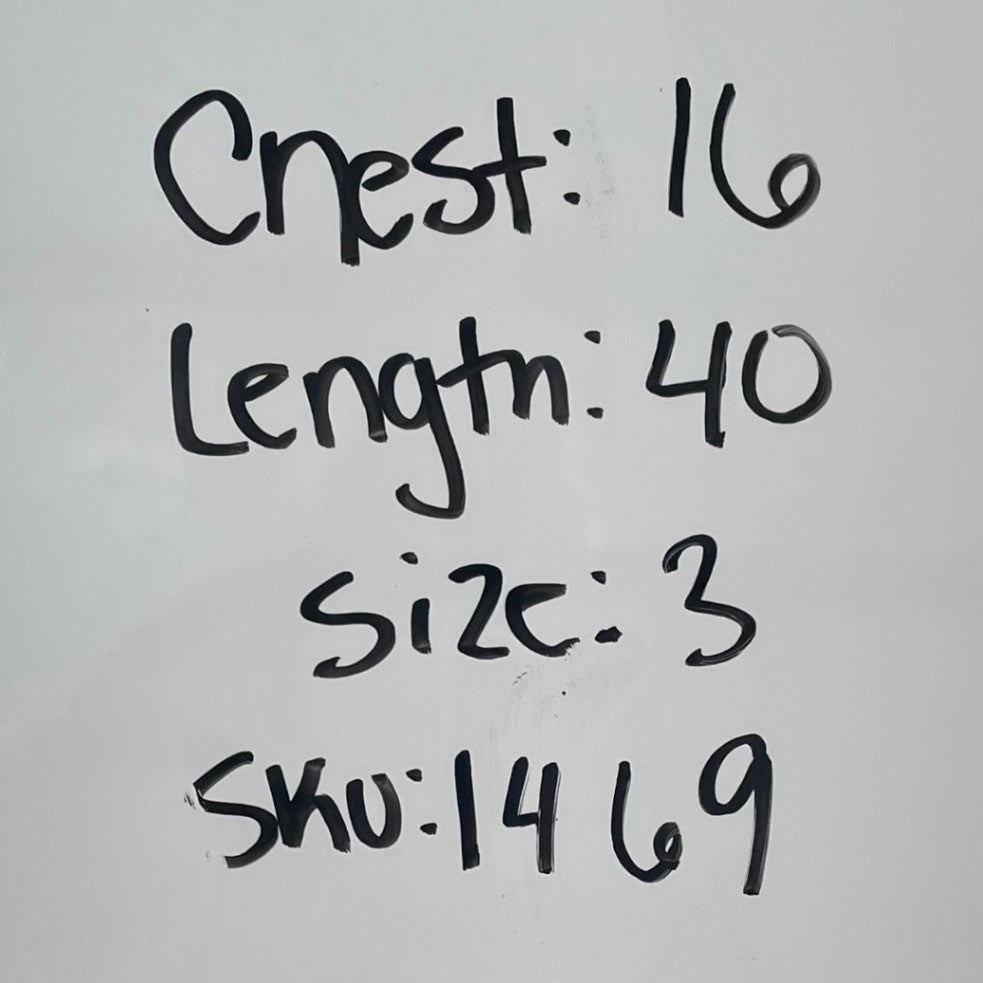 Chest: 16
Length: 40
Size: 3
SKU: 1469